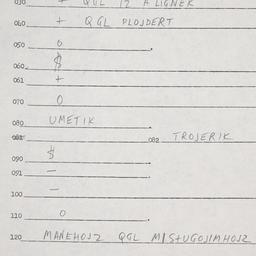 030 + QGL 12 A LIGNEK
040 + QGL PLOJDERT
050 0
060 $
061 +
070 0
080 UMETIK
081 082 TROJERIK
090 $
091 -
100 -
110 0
120 MAŃEHOJZ QGL MISTUGOJIMHOJZ